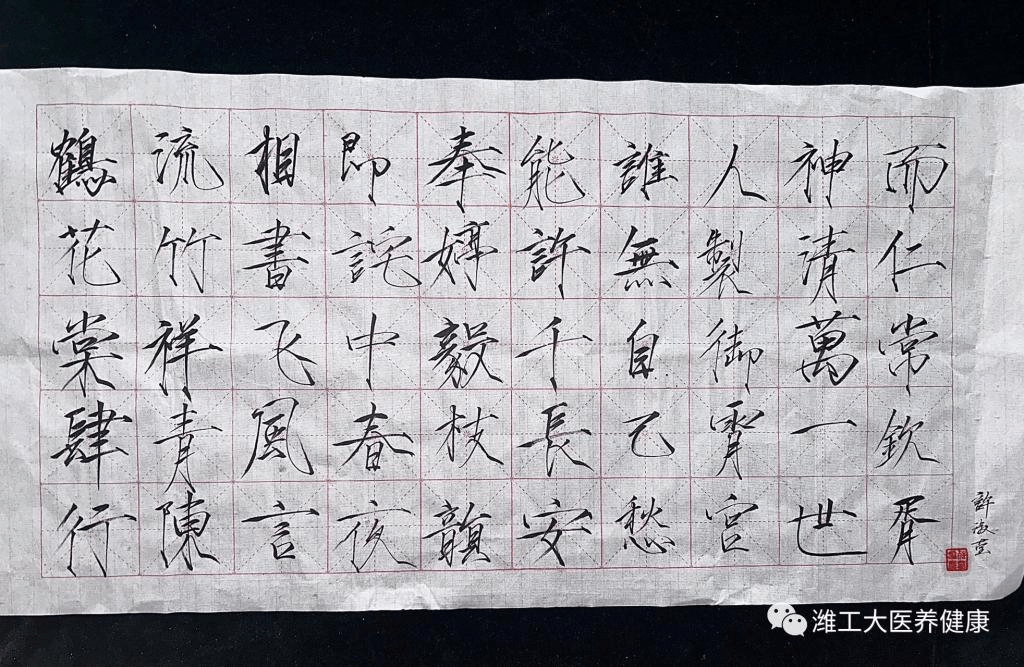 鶴流相即奉能誰人神而
花竹書詫婷許無製清仁
棠祥飞中毅千自御萬常
肆青風春枝長乙霄一欽
行陳言夜韻安愁宫世胥
潍工大医养健康